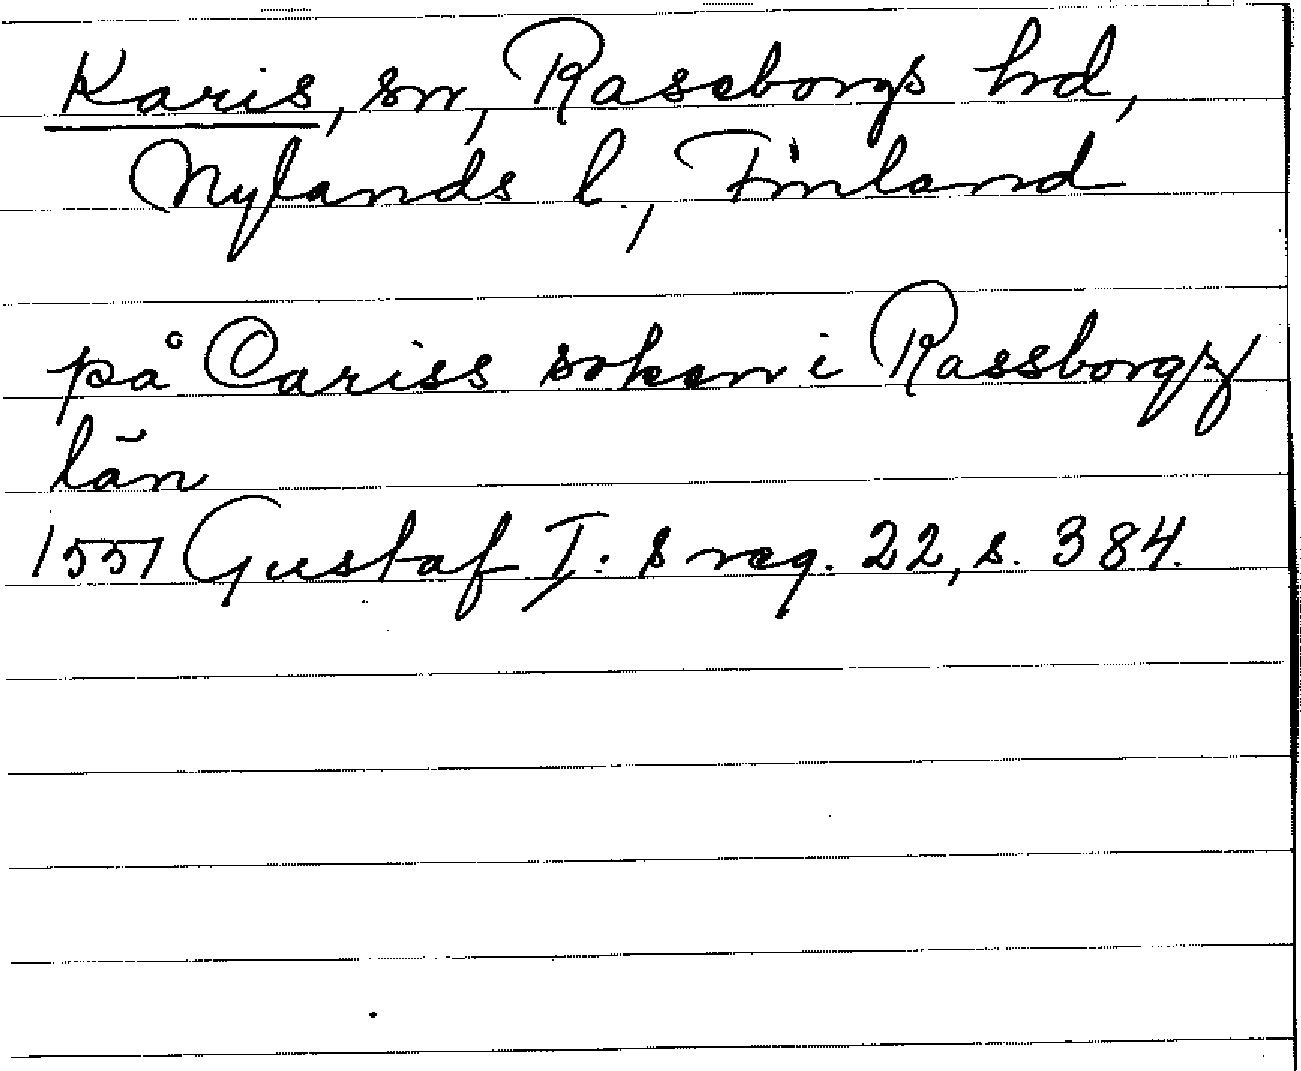 Karis, sn, Raseborgs hd,
Nylands l., Finland
på Cariss soken i Rassborgz
län
1551 Gustaf I:s reg. 22, s. 384.